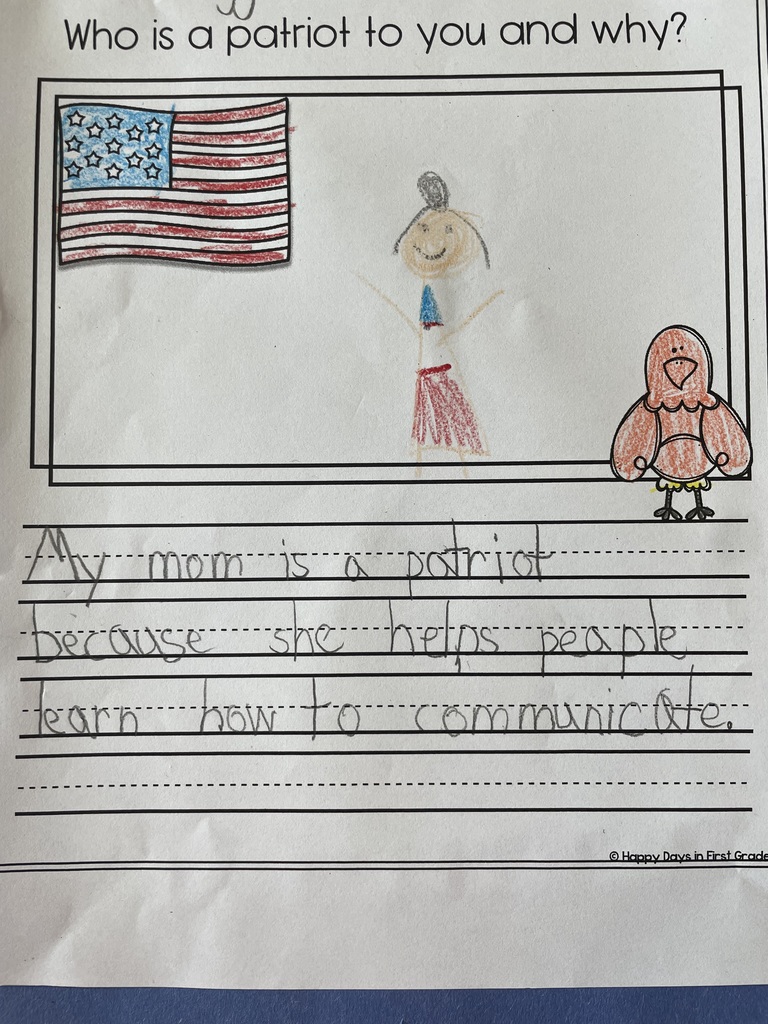 Who is a patriot to you and why?
My mom is a patriot
because she helps peaple
learn how to communicate.
© Happy Days in First Grade